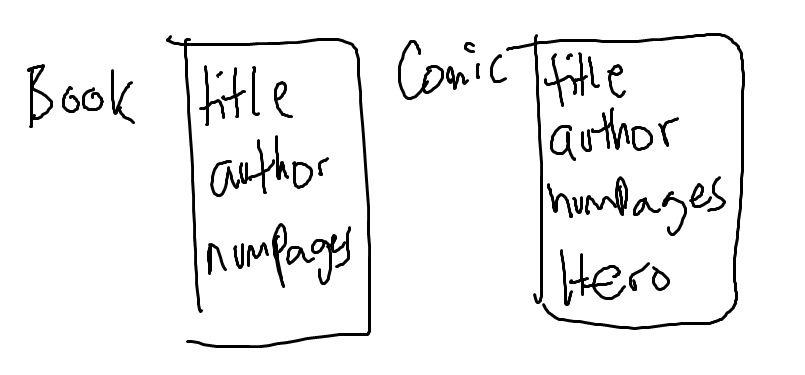 Book
title
author
numpages
Comic
title
author
numpages
Hero